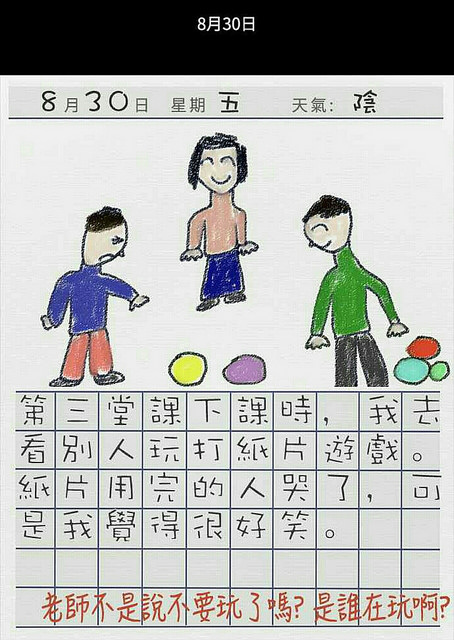 8月30日
8月30日 星期 五 天氣: 陰
第三堂課下課時，我去
看別人玩打紙片遊戲。
紙片用完的人哭了，可
是我覺得很好笑。
老師不是說不要玩了嗎?是誰在玩啊?